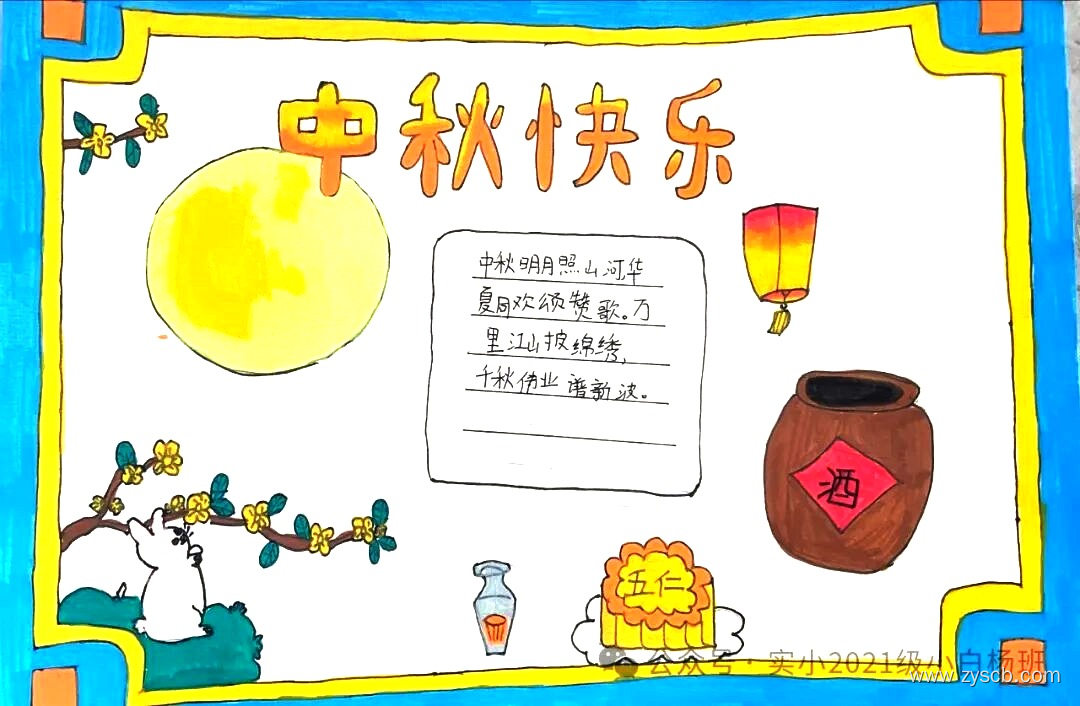 中秋快乐
中秋明月照山河华
夏同欢颂赞歌。万
里江山披绵绣,
千秋伟业谱新波。
酒
五仁
公众号·实小2021级小白杨班
www.zyscb.com